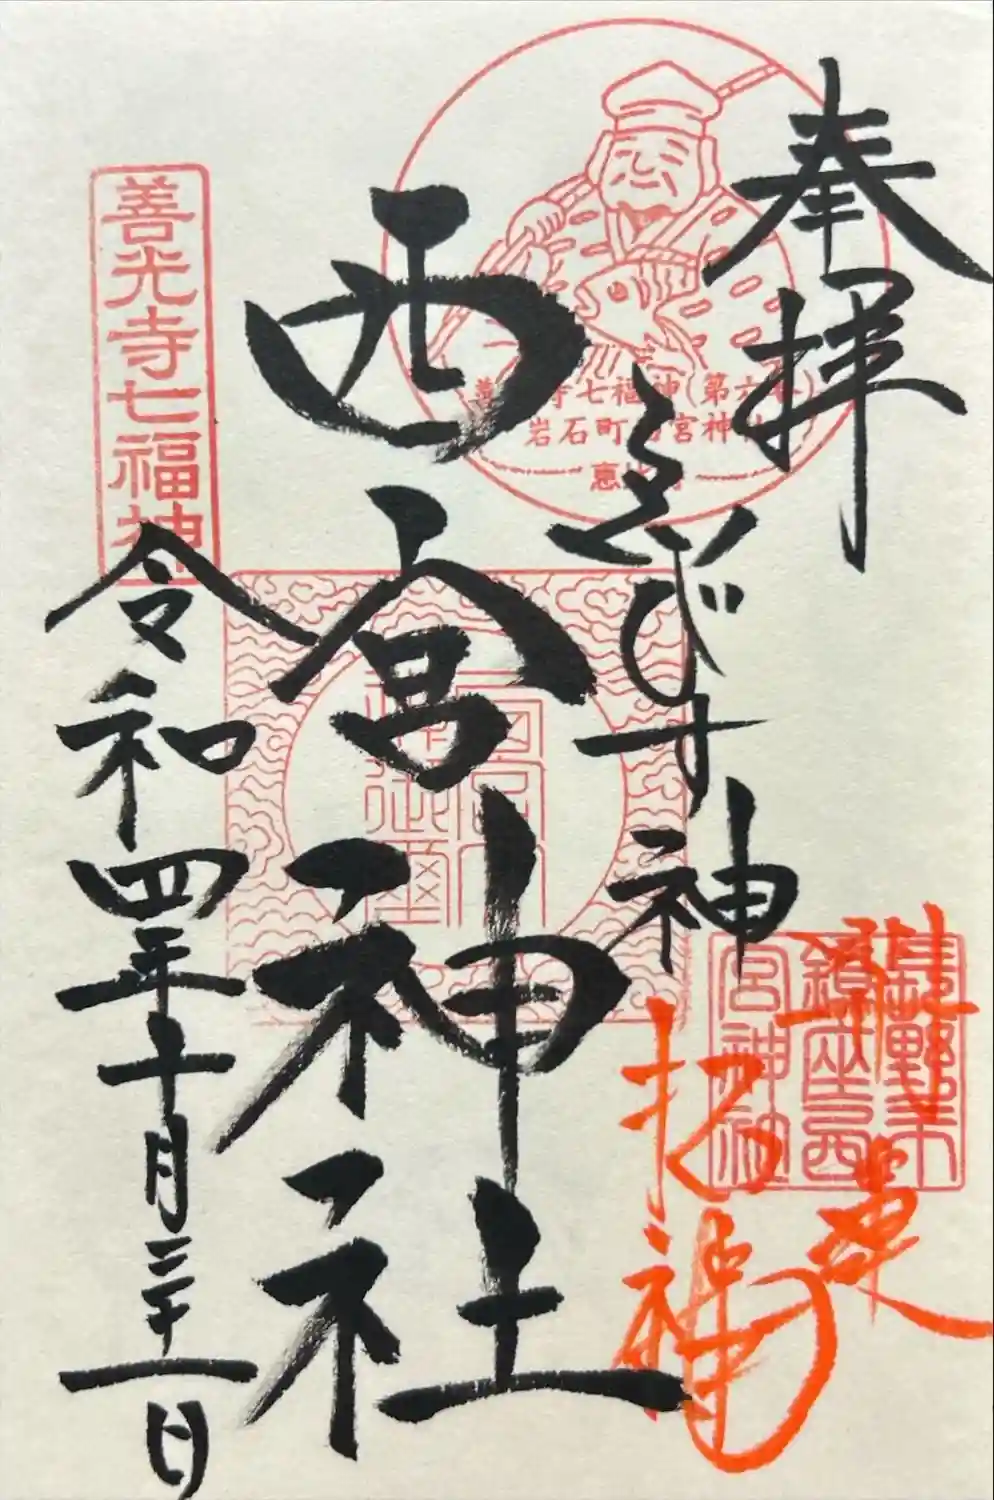 奉拝
えびす神
西宮神社
令和四年十月二十一日
善光寺七福神
善光寺七福神(第六番)
岩石町西宮神社
恵比寿
長野市
鎮座西
宮神社
招福